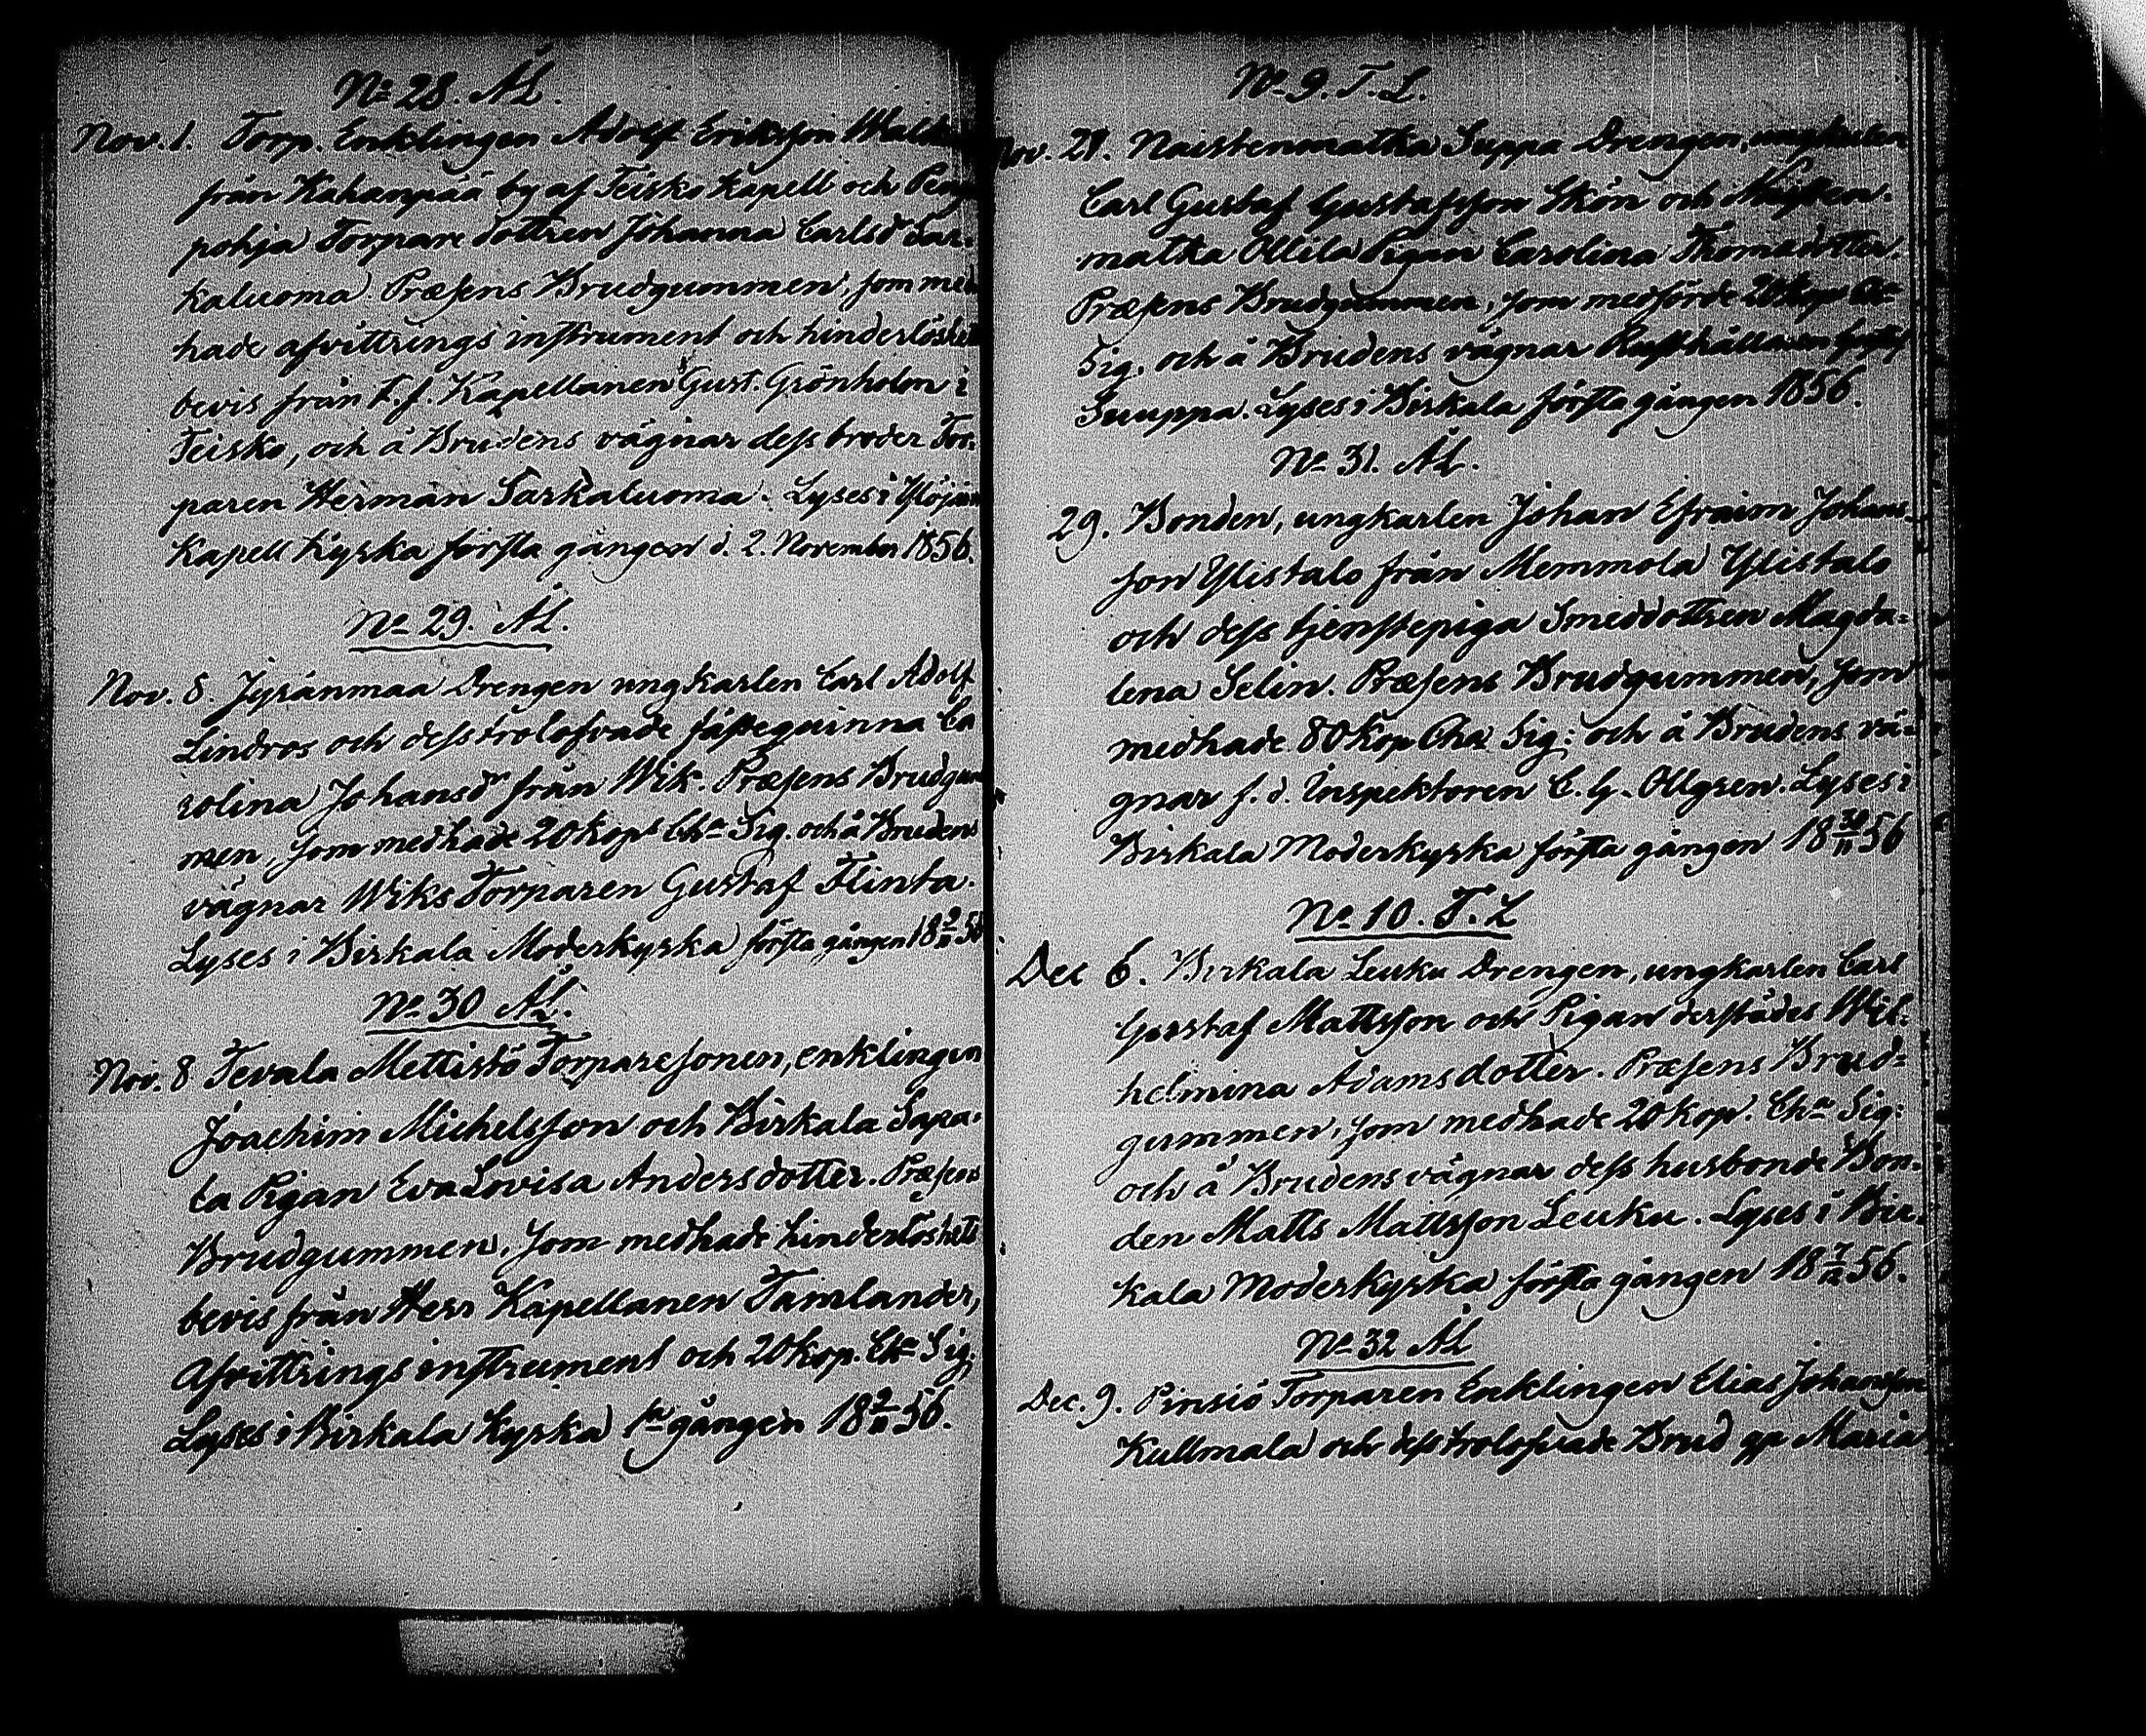 No 28. ÅL.
Nov. 1. Torp. Enklingen Adolf Eriksson
från Kahanpää by af Teisko Kapell och
pohja Torpare dottren Johanna Carlsd Sar-
kaluoma. Præsens Brudgummen, som med
hade afvittrings instrument och hinderlöshets
bevis från t.f. Kapellanen Gust. Grönholm i
Teisko, och å Brudens vägnar dess broder Tor-
paren Herman Sarkaluoma. Lyses i Ylöjärvi
Kapell kyrka första gången d. 2. November 1856.
No 29. ÅL.
Nov. 8. Jyränmaa Drengen ungkarlen Carl Adolf
Lindros och dess trolofvade fästeqvinna Ca
rolina Johansdr från Wik. Præsens Brudgum
men, som medhade 20 kops Cha Sig. och å Brudens
vägnar Wiks Torparen Gustaf Flinta.
Lyses i Birkala Moderkyrka första gången 18 9/11 56
No 30 ÅL.
Nov. 8 Tevala Mettistö Torparesonen, enklingen
Joachim Michelsson och Birkala Sapa-
la Pigan Eva Lovisa Andersdotter. Præsens
Brudgummen, som medhade hinderlöshets
bevis från Herr Kapellanen Tamlander,
Afvittrings instrument och 20 kop. Cha Sig.
Lyses i Birkala Kyrka 1a gången 18 9/11 56.
No 9. T.L.
Nov. 29. Naistenmatka Suppa Drengen, ungkarlen
Carl Gustaf Gustafsson Skön och Naisten-
matka Ollila Pigan Carolina Thomedotter.
Præsens Brudgummen, som medförde 20 kop Cha
Sig. och å Brudens vägnar Rusthållaren
Suuppa. Lyses i Birkala första gången 1856.
No 31. ÅL.
29. Bonden, ungkarlen Johan Efraim Johans-
son Ylistalo från Memmola Ylistalo
och dess tjenstepiga Smeddottren Magda-
lena Selin. Præsens Brudgummen, som
medhade 80 kop Cha Sig: och å Brudens vä-
gnar f.d. Inspektoren C.G. Ollgren. Lyses i
Birkala Moderkyrka första gången 18 30/11 56
No 10. T.L
Dec 6. Birkala Leuku Drengen, ungkarlen Carl
Gustaf Mattsson och Pigan derstädes Wil-
helmina Adamsdotter. Præsens Brud-
gummen, som medhade 20 kop. Cha Sig:
och å Brudens vägnar dess husbonde Bon-
den Matts Mattsson Leuku. Lyses i Bir-
kala Moderkyrka första gången 18 7/12 56.
No 32 ÅL
Dec. 9. Pinsiö Torparen Enklingen Elias Johansson
Kullmala och dess trolofvade Brud qp Maria